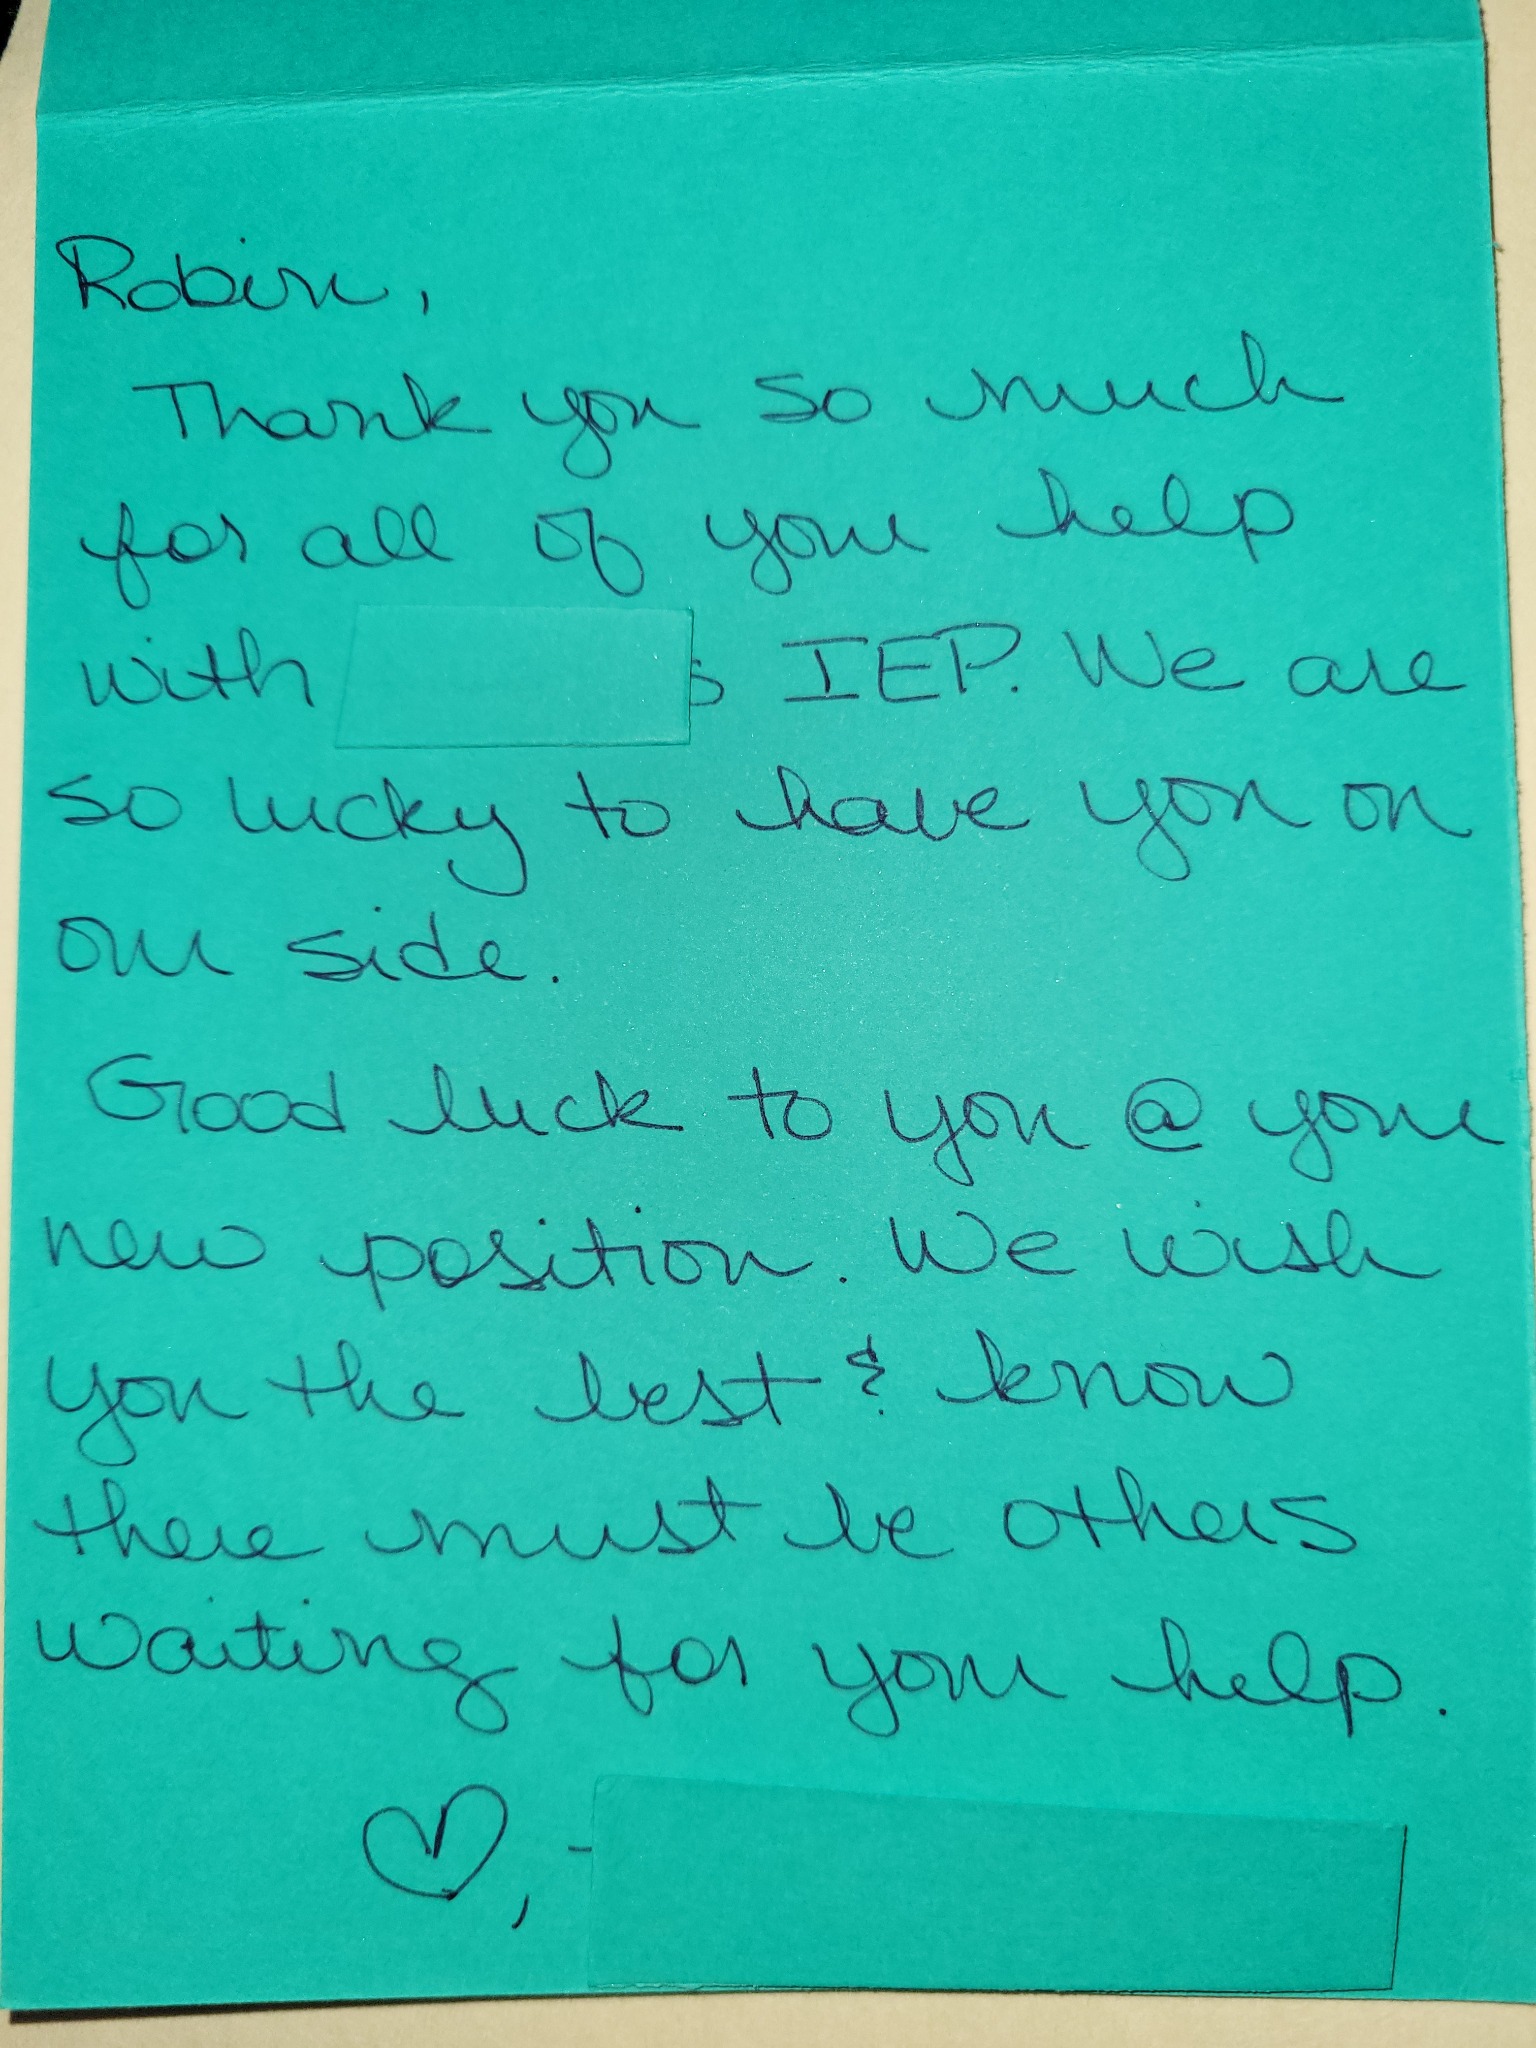 Robin,
Thank you so much
for all of your help
with s IEP. We are
so lucky to have you on
our side.
Good luck to you @ your
new position. We wish
you the best & know
there must be others
waiting for your help.
♡, -